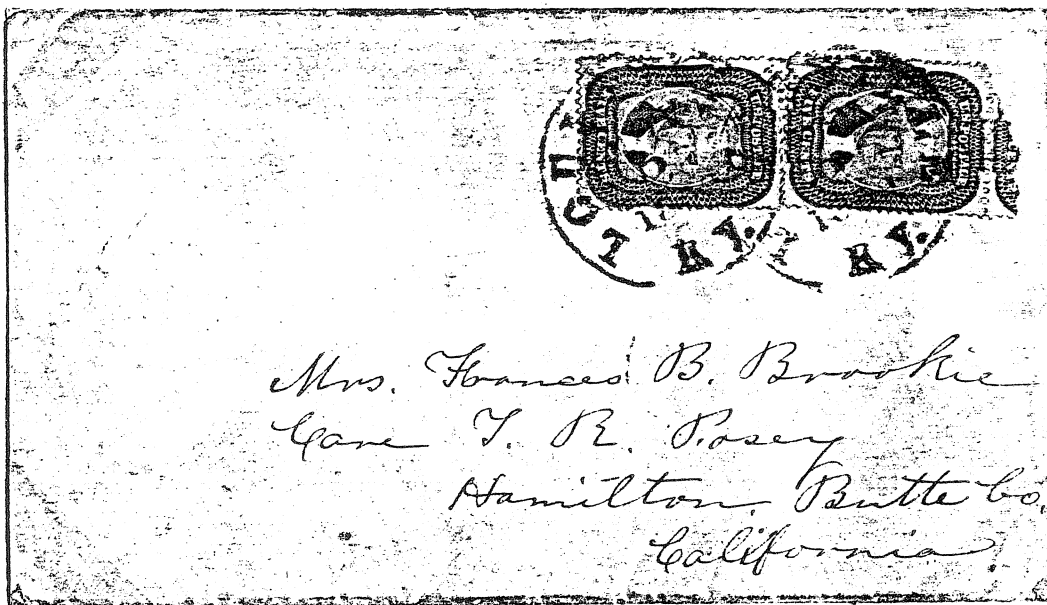 LOU KY. KY.
Mrs. Frances B. Brookie
Care T. R. Posey
Hamilton, Butte Co.
California